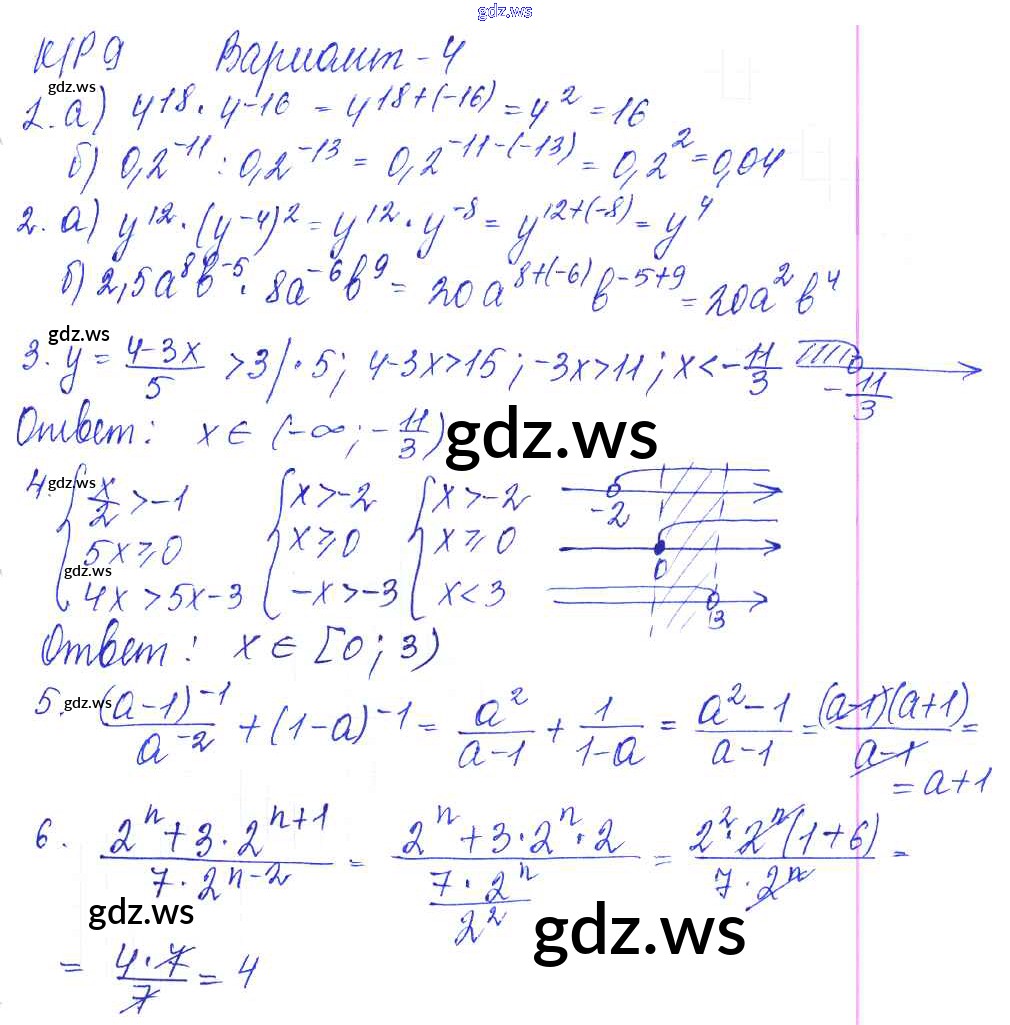 gdz.ws
К/Р 9 Вариант - 4
gdz.ws
1. а) 4^18 · 4^-16 = 4^18+(-16) = 4^2 = 16
б) 0,2^-11 : 0,2^-13 = 0,2^-11-(-13) = 0,2^2 = 0,04
2. а) y^12 · (y^-4)^2 = y^12 · y^-8 = y^12+(-8) = y^4
б) 2,5a^8 b^-5 · 8a^-6 b^9 = 20a^8+(-6) b^-5+9 = 20a^2 b^4
gdz.ws
3. y = (4-3x)/5 > 3 | · 5; 4-3x > 15; -3x > 11; x < -11/3 -11/3
Ответ: x ∈ (-∞; -11/3)
gdz.ws
gdz.ws
4. { x/2 > -1 { x > -2 { x > -2 -2
5x ⩾ 0 x ⩾ 0 x ⩾ 0 0
gdz.ws
4x > 5x-3 -x > -3 x < 3 3
Ответ: x ∈ [0; 3)
gdz.ws
5. (a-1)^-1/a^-2 + (1-a)^-1 = a^2/(a-1) + 1/(1-a) = (a^2-1)/(a-1) = (a-1)(a+1)/(a-1) =
= a+1
6. (2^n + 3·2^n+1)/(7·2^n-2) = (2^n + 3·2^n·2)/(7·2^n/2^2) = 2^2·2^n(1+6)/(7·2^n) =
gdz.ws
gdz.ws
= 4·7/7 = 4